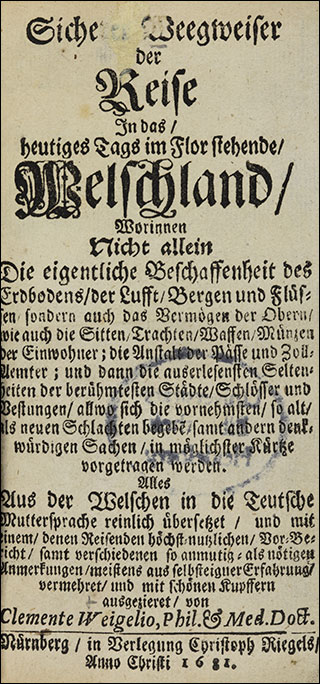 Sicherer Weegweiser
der
Reise
In das /
heutiges Tags im Flor stehende /
Welschland /
Worinnen
Nicht allein
Die eigentliche Beschaffenheit des
Erdbodens / der Lufft / Bergen und Flüs-
sen / sondern auch das Vermögen der Obern /
wie auch die Sitten / Trachten / Waffen / Müntzen
der Einwohner ; die Anstalt der Pässe und Zoll-
Aemter ; und dann die auserlesensten Selten-
heiten der berühmtesten Städte / Schlösser und
Vestungen / allwo sich die vornehmsten / so alt /
als neuen Schlachten begebẽ / samt andern denk-
würdigen Sachen / in möglichster Kürtze
vorgetragen werden.
Alles
Aus der Welschen in die Teutsche
Muttersprache reinlich übersetzet / und mit
einem / denen Reisenden höchst-nutzlichen / Vor-Be-
richt / samt verschiedenen so anmutig- als nötigen
Anmerkungen / meistens aus selbsteigner Erfahrung /
vermehret / und mit schönen Kupffern
ausgezieret / von
Clemente Weigelio, Phil. & Med. Doct.
Nürnberg / in Verlegung Christoph Riegels /
Anno Christi 1681.